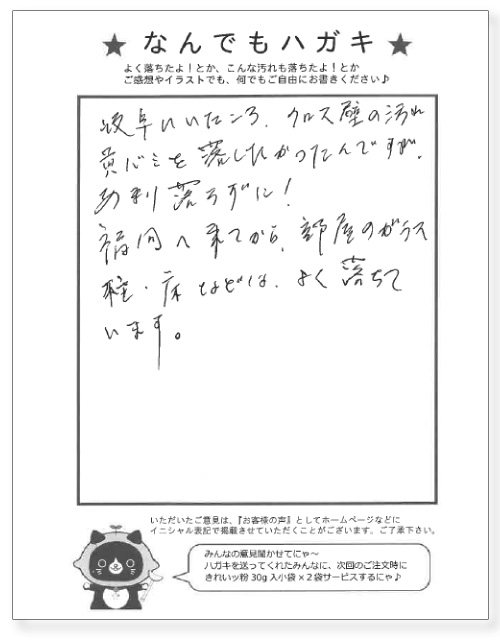 ★ なんでもハガキ ★
よく落ちたよ！とか、こんな汚れも落ちたよ！とか
ご感想やイラストでも、何でもご自由にお書きください♪
岐阜にいたころ、クロス壁の汚れ
黄バミを落したかったんですが、
あまり落ちずに！
福岡へ来てから、部屋のガラス
・床などは、よく落ちて
います。
いただいたご意見は、『お客様の声』としてホームページなどに
イニシャル表記で掲載させていただくことがございます。ご了承下さい。
みんなの意見聞かせてにゃ〜
ハガキを送ってくれたみんなに、次回のご注文時に
きれいッ粉 30g 入小袋×２袋サービスするにゃ♪